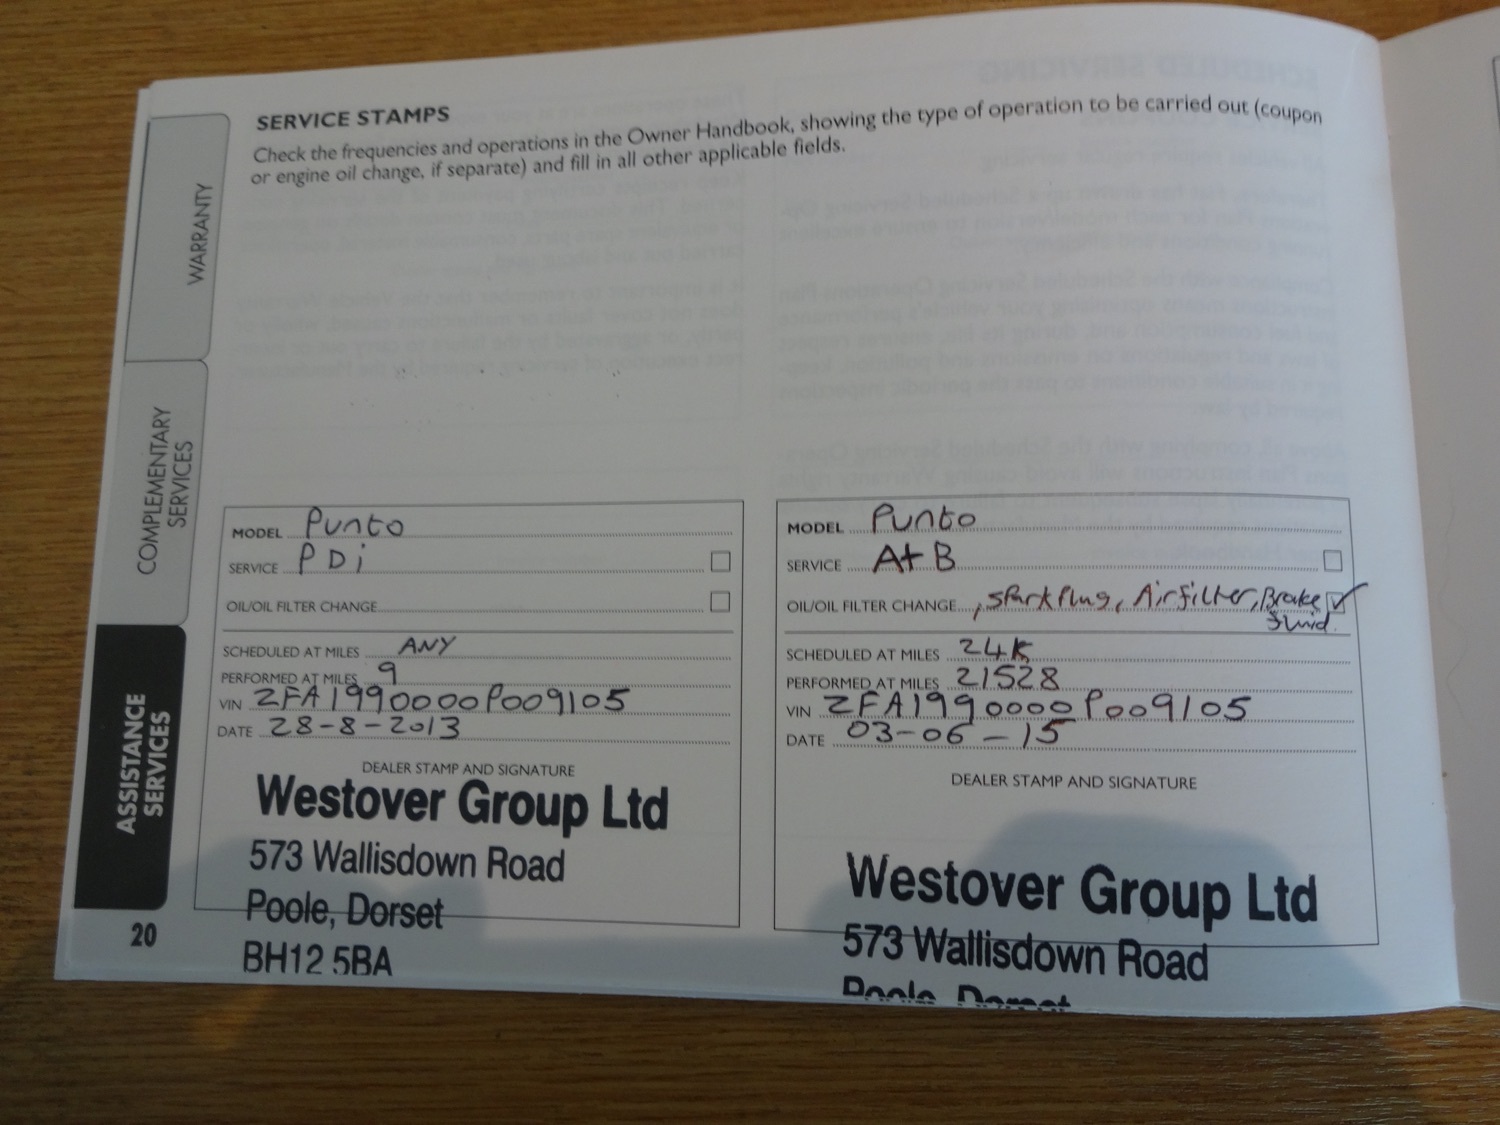 SERVICE STAMPS
Check the frequencies and operations in the Owner Handbook, showing the type of operation to be carried out (coupon
or engine oil change, if separate) and fill in all other applicable fields.
WARRANTY
COMPLEMENTARY
SERVICES
ASSISTANCE
SERVICES
20
MODEL Punto
SERVICE PDi
OIL/OIL FILTER CHANGE
SCHEDULED AT MILES ANY
PERFORMED AT MILES 9
VIN ZFA1990000P009105
DATE 28-8-2013
DEALER STAMP AND SIGNATURE
Westover Group Ltd
573 Wallisdown Road
Poole, Dorset
BH12 5BA
MODEL Punto
SERVICE A+B
OIL/OIL FILTER CHANGE , Spark Plug, Air filter, Brake
fluid.
SCHEDULED AT MILES 24K
PERFORMED AT MILES 21528
VIN ZFA1990000P009105
DATE 03-06-15
DEALER STAMP AND SIGNATURE
Westover Group Ltd
573 Wallisdown Road
Poole, Dorset